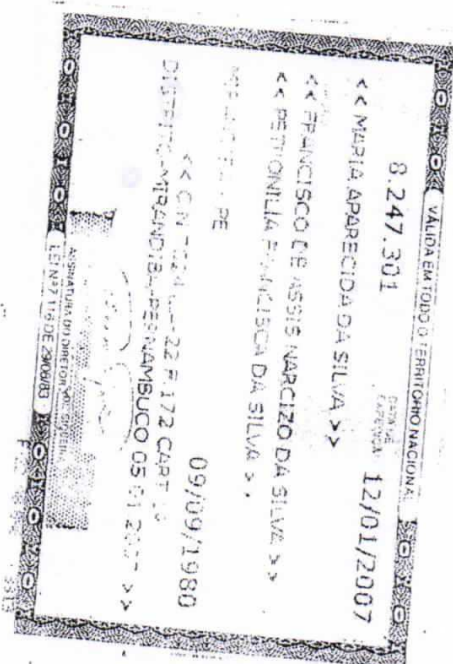 VÁLIDA EM TODO O TERRITÓRIO NACIONAL
8.247.301 12/01/2007
<< MARIA APARECIDA DA SILVA >>
<< FRANCISCO DE ASSIS NARCIZO DA SILVA >>
<< PETIONILIA FRANCISCA DA SILVA >>
PE
09/09/1980
<< C.N F.172 CART
DISTRITO-MIRANDIBA-PERNAMBUCO >>
ASSINATURA DO DIRETOR
LEI Nº 7.116 DE 29/08/83